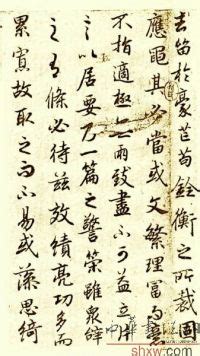 去留於豪芒苟銓衡之所裁固
應繩其必當或文繁理富而意
不指適極無兩致盡不可益立片
言以居要乃一篇之警策雖衆辭
之有條必待茲效績亮功多而
累寡故取足而不易或藻思綺
shxw.com